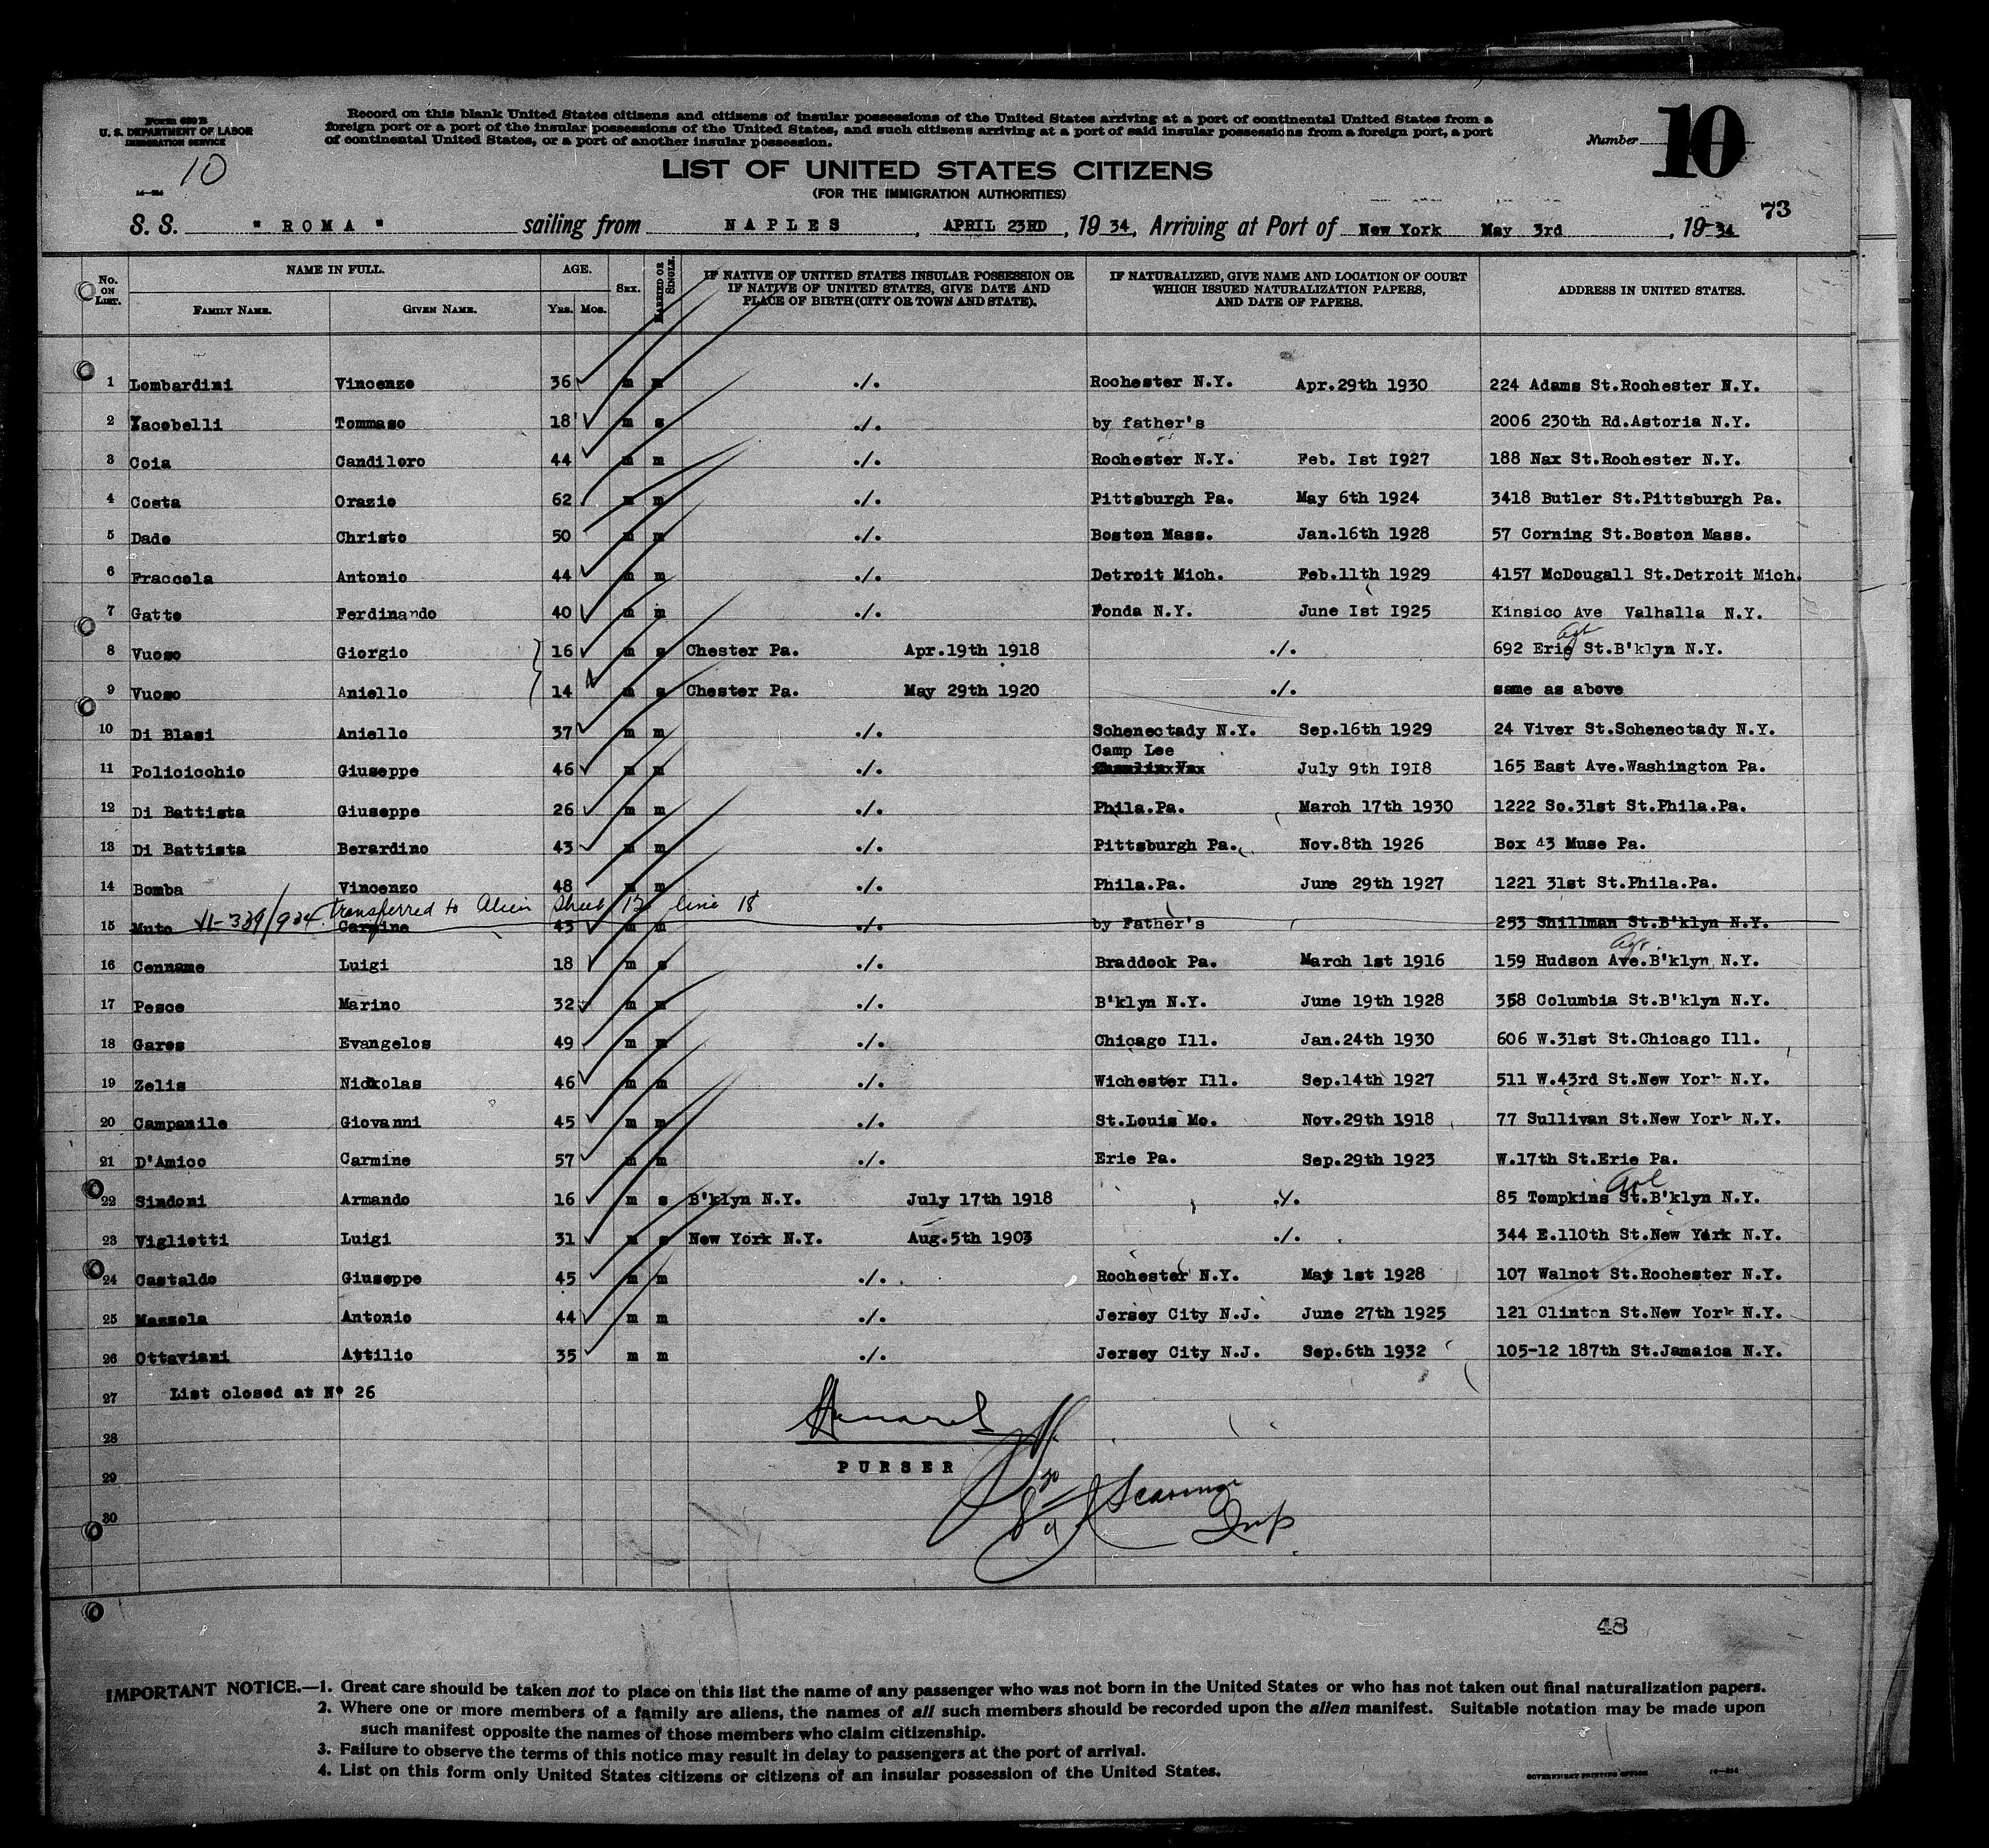 Form 630 B
U. S. DEPARTMENT OF LABOR
IMMIGRATION SERVICE
10
Record on this blank United States citizens and citizens of insular possessions of the United States arriving at a port of continental United States from a
foreign port or a port of the insular possessions of the United States, and such citizens arriving at a port of said insular possessions from a foreign port, a port
of continental United States, or a port of another insular possession.
Number 10
LIST OF UNITED STATES CITIZENS
(FOR THE IMMIGRATION AUTHORITIES)
73
S. S. " ROMA " sailing from NAPLES, APRIL 23RD, 19 34, Arriving at Port of New York May 3rd, 19 34
No. ON LIST. NAME IN FULL. AGE. SEX. MARRIED OR SINGLE. IF NATIVE OF UNITED STATES INSULAR POSSESSION OR IF NATIVE OF UNITED STATES, GIVE DATE AND PLACE OF BIRTH (CITY OR TOWN AND STATE). IF NATURALIZED, GIVE NAME AND LOCATION OF COURT WHICH ISSUED NATURALIZATION PAPERS, AND DATE OF PAPERS. ADDRESS IN UNITED STATES.
FAMILY NAME. GIVEN NAME. YRS. MOS.
1 Lombardini Vincenzo 36 m m ./. Rochester N.Y. Apr.29th 1930 224 Adams St.Rochester N.Y.
2 Yacobelli Tommaso 18 m s ./. by father's 2006 230th Rd.Astoria N.Y.
3 Coia Candiloro 44 m m ./. Rochester N.Y. Feb. Ist I927 188 Nax St.Rochester N.Y.
4 Costa Orazio 62 m m ./. Pittsburgh Pa. May 6th 1924 3418 Butler St.Pittsburgh Pa.
5 Dado Christo 50 m m ./. Boston Mass. Jan.16th 1928 57 Corning St.Boston Mass.
6 Fraccola Antonio 44 m m ./. Detroit Mich. Feb.11th 1929 4157 McDougall St.Detroit Mich.
7 Gatto Ferdinando 40 m m ./. Fonda N.Y. June Ist I925 Kinsico Ave Valhalla N.Y.
8 Vuoso Giorgio 16 m s Chester Pa. Apr.19th 1918 ./. 692 Erie St.B'klyn N.Y.
9 Vuoso Aniello 14 m s Chester Pa. May 29th 1920 ./. same as above
10 Di Blasi Aniello 37 m m ./. Schenectady N.Y. Sep.16th 1929 24 Viver St.Schenectady N.Y.
Camp Lee
11 Policicchio Giuseppe 46 m m ./. July 9th I9I8 165 East Ave.Washington Pa.
12 Di Battista Giuseppe 26 m m ./. Phila.Pa. March 17th 1930 1222 So.31st St.Phila.Pa.
13 Di Battista Berardino 43 m m ./. Pittsburgh Pa. Nov.8th 1926 Box 43 Muse Pa.
14 Bomba Vincenzo 48 m m ./. Phila.Pa. June 29th 1927 1221 31st St.Phila.Pa.
transferred to Alien Sheet 12 line 18
15 Muto Carmine 43 m m ./. by Father's 253 Shillman St.B'klyn N.Y.
16 Cenname Luigi 18 m s ./. Braddock Pa. March 1st 1916 159 Hudson Ave.B'klyn N.Y.
17 Pesce Marino 32 m m ./. B'klyn N.Y. June 19th 1928 358 Columbia St.B'klyn N.Y.
18 Garos Evangelos 49 m m ./. Chicago Ill. Jan.24th 1930 606 W.31st St.Chicago Ill.
19 Zelis Nickolas 46 m m ./. Wichester Ill. Sep.14th 1927 511 W.43rd St.New York N.Y.
20 Campanile Giovanni 45 m m ./. St.Louis Mo. Nov.29th 1918 77 Sullivan St.New York N.Y.
21 D'Amico Carmine 57 m m ./. Erie Pa. Sep.29th 1923 W.17th St.Erie Pa.
22 Sindoni Armando 16 m s B'klyn N.Y. July 17th 1918 ./. 85 Tompkins St.B'klyn N.Y.
23 Viglietti Luigi 31 m s New York N.Y. Aug.5th 1903 ./. 344 E.110th St.New York N.Y.
24 Castaldo Giuseppe 45 m m ./. Rochester N.Y. May 1st 1928 107 Walnot St.Rochester N.Y.
25 Massola Antonio 44 m m ./. Jersey City N.J. June 27th 1925 121 Clinton St.New York N.Y.
26 Ottaviani Attilio 35 m m ./. Jersey City N.J. Sep.6th 1932 105-12 187th St.Jamaica N.Y.
27 List closed at No 26
28
PURSER
29
30
Insp.
48
IMPORTANT NOTICE.—1. Great care should be taken not to place on this list the name of any passenger who was not born in the United States or who has not taken out final naturalization papers.
2. Where one or more members of a family are aliens, the names of all such members should be recorded upon the alien manifest. Suitable notation may be made upon
such manifest opposite the names of those members who claim citizenship.
3. Failure to observe the terms of this notice may result in delay to passengers at the port of arrival.
4. List on this form only United States citizens or citizens of an insular possession of the United States.
GOVERNMENT PRINTING OFFICE